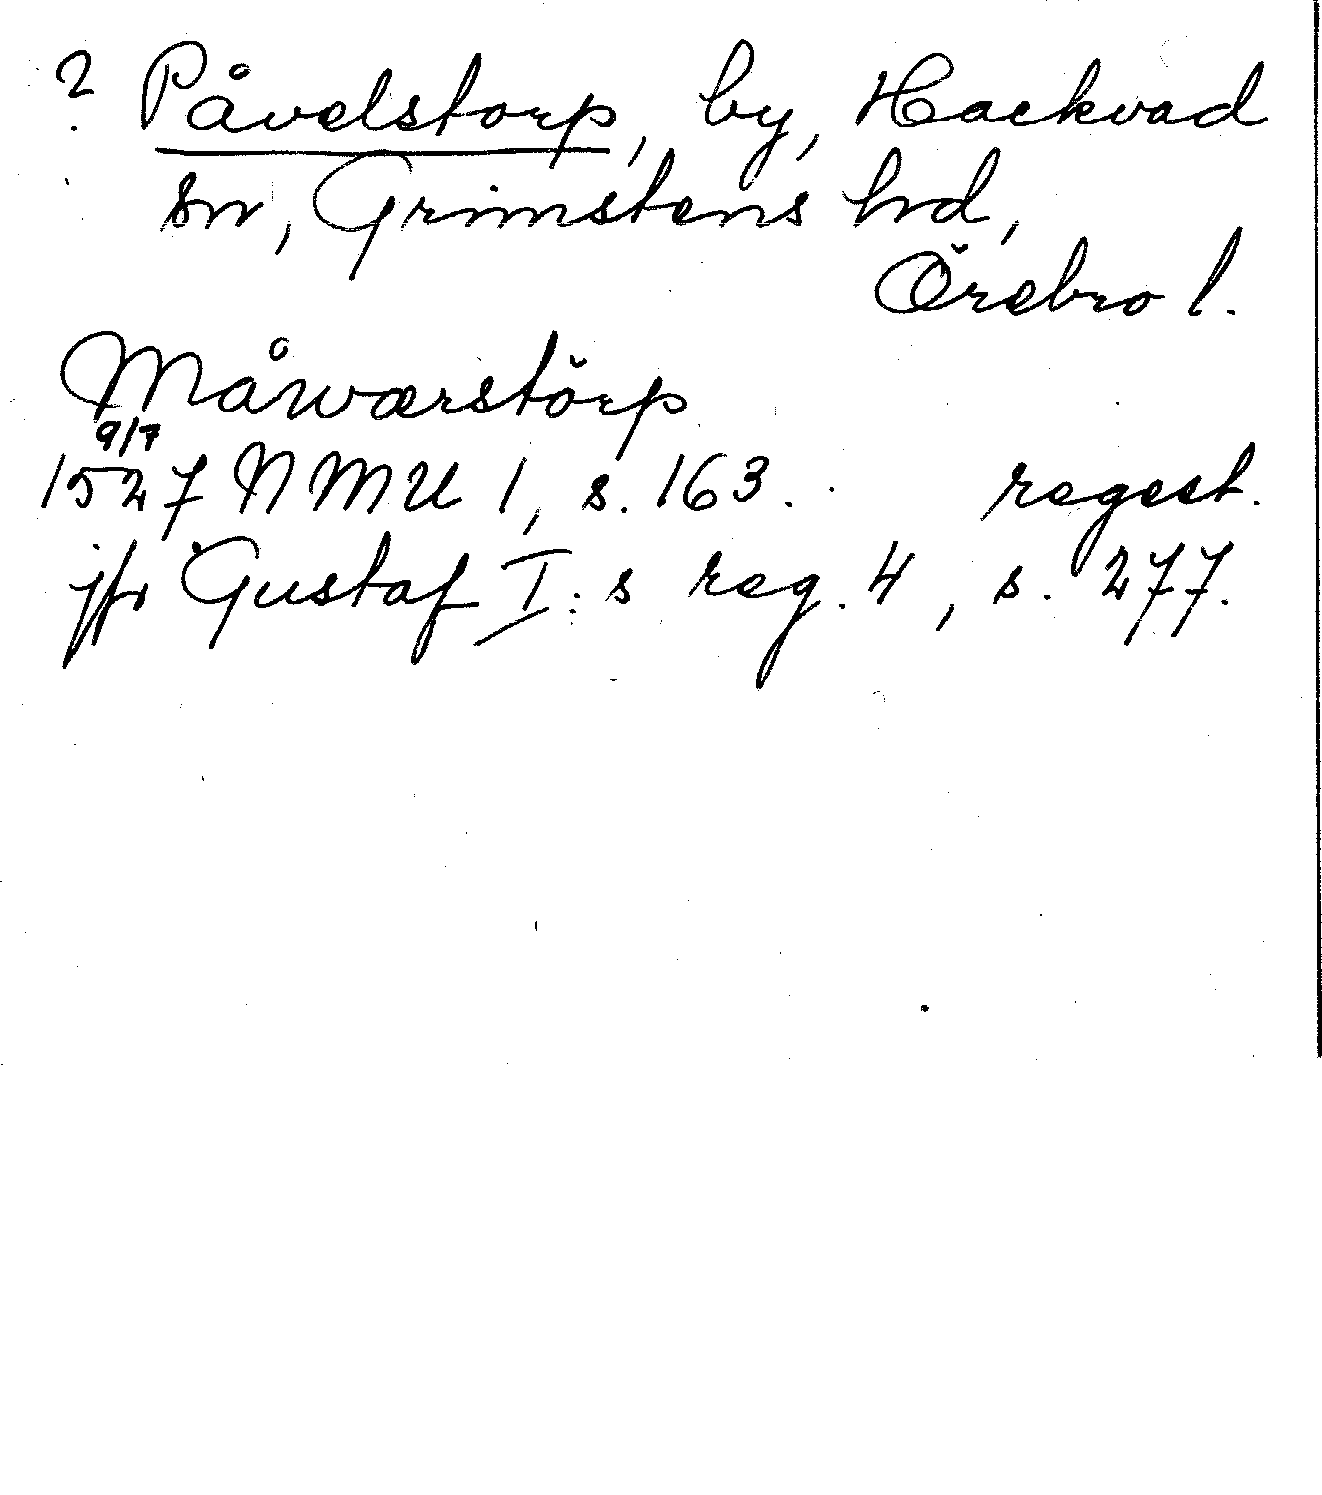 ? Påvelstorp, by, Hackvad
sn, Grimstens hd,
Örebro l.
Måwærstörp
9/7
1527 NMU 1, s. 163. regest.
jfr Gustaf I:s reg. 4, s. 277.